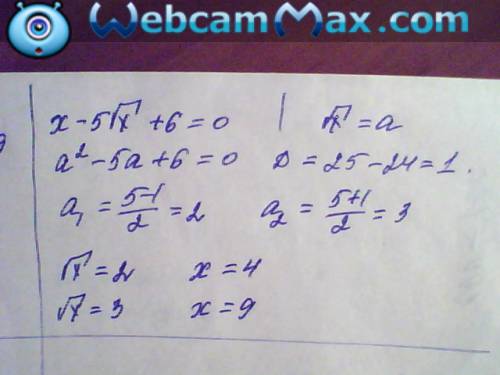 WebcamMax.com
x - 5√x + 6 = 0 | √x = a
a² - 5a + 6 = 0 D = 25 - 24 = 1.
a₁ = (5-1)/2 = 2 a₂ = (5+1)/2 = 3
√x = 2 x = 4
√x = 3 x = 9